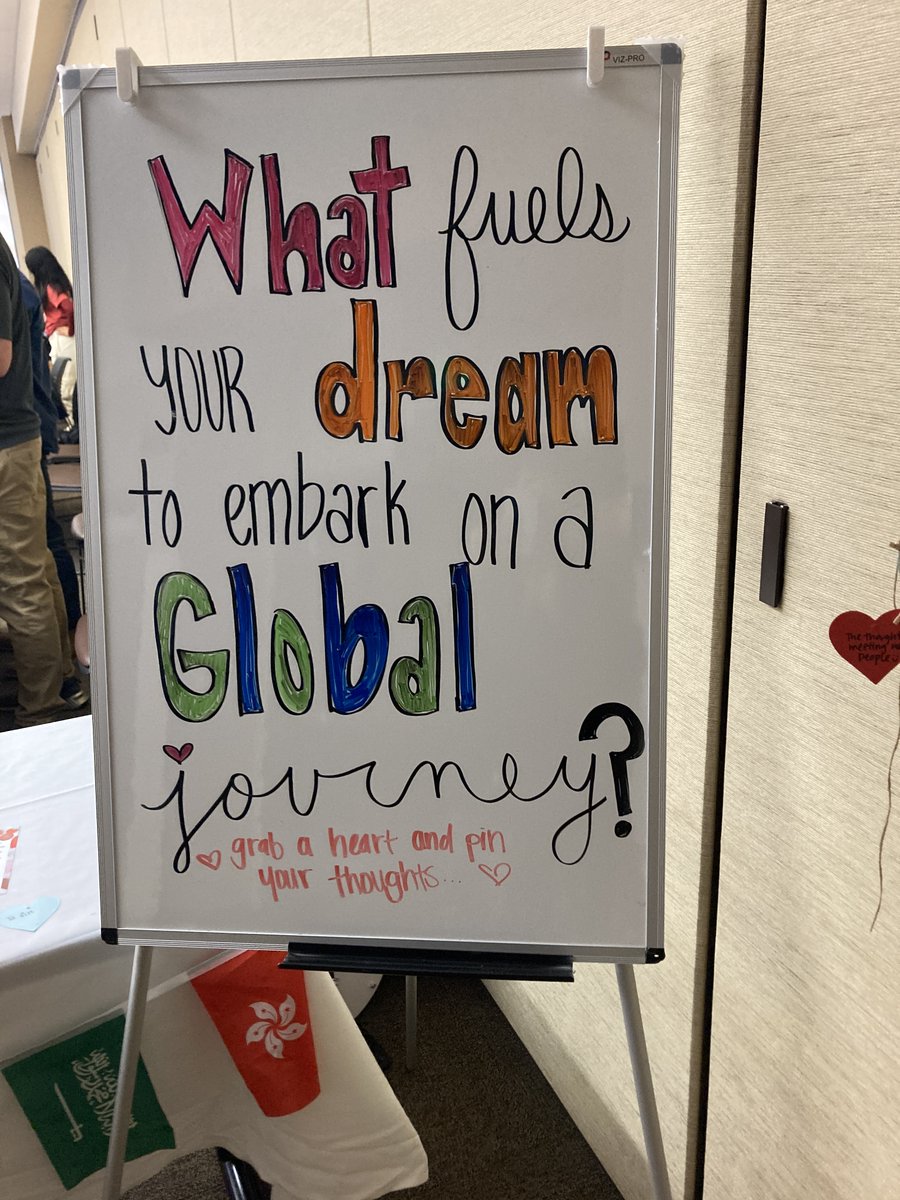 VIZ-PRO
What fuels
YOUR dream
to embark on a
Global
journey?
grab a heart and pin
your thoughts...
The thought
meeting
People